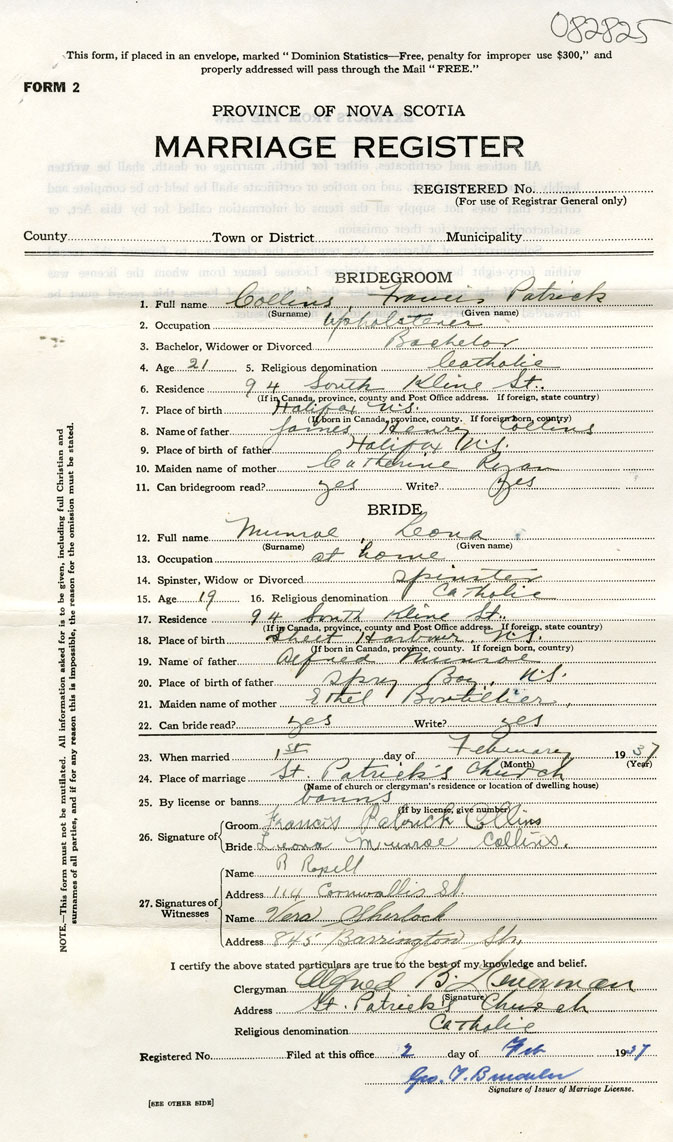 082825
This form, if placed in an envelope, marked "Dominion Statistics—Free, penalty for improper use $300," and
properly addressed will pass through the Mail "FREE."
FORM 2
PROVINCE OF NOVA SCOTIA
MARRIAGE REGISTER
REGISTERED No.
(For use of Registrar General only)
County Town or District Municipality
BRIDEGROOM
1. Full name Collins, Francis Patrick
(Surname) (Given name)
2. Occupation Upholsterer
3. Bachelor, Widower or Divorced Bachelor
4. Age 21 5. Religious denomination Catholic
6. Residence 94 South Kline St.
(If in Canada, province, county and Post Office address. If foreign, state country)
7. Place of birth Halifax N.S.
(If born in Canada, province, county. If foreign born, country)
8. Name of father James Henry Collins
9. Place of birth of father Halifax N.S.
10. Maiden name of mother Catherine Ryan
11. Can bridegroom read? yes Write? yes
BRIDE
12. Full name Munroe, Leona
(Surname) (Given name)
13. Occupation at home
14. Spinster, Widow or Divorced Spinster
15. Age 19 16. Religious denomination Catholic
17. Residence 94 South Kline St.
(If in Canada, province, county and Post Office address. If foreign, state country)
18. Place of birth Sheet Harbour, N.S.
(If born in Canada, province, county. If foreign born, country)
19. Name of father Alfred Munroe
20. Place of birth of father Spry Bay, N.S.
21. Maiden name of mother Ethel Boutilier,
22. Can bride read? yes Write? yes
23. When married 1st day of February 1937
(Month) (Year)
24. Place of marriage St. Patrick's Church
(Name of church or clergyman's residence or location of dwelling house)
25. By license or banns banns
(If by license, give number)
26. Signature of Groom Francis Patrick Collins
Bride Leona Munroe Collins.
27. Signatures of Witnesses
Name B
Address 114 Cornwallis St.
Name Vera Sherlock
Address 845 Barrington Str.
I certify the above stated particulars are true to the best of my knowledge and belief.
Clergyman Alfred B.
(Signature)
Address St. Patrick's Church
Religious denomination Catholic
Registered No. Filed at this office 2 day of Feb 1937
Geo. F.
Signature of Issuer of Marriage License.
[SEE OTHER SIDE]
NOTE.—This form must not be mutilated. All information asked for is to be given, including full Christian and
surnames of all parties, and if for any reason this is impossible, the reason for the omission must be stated.